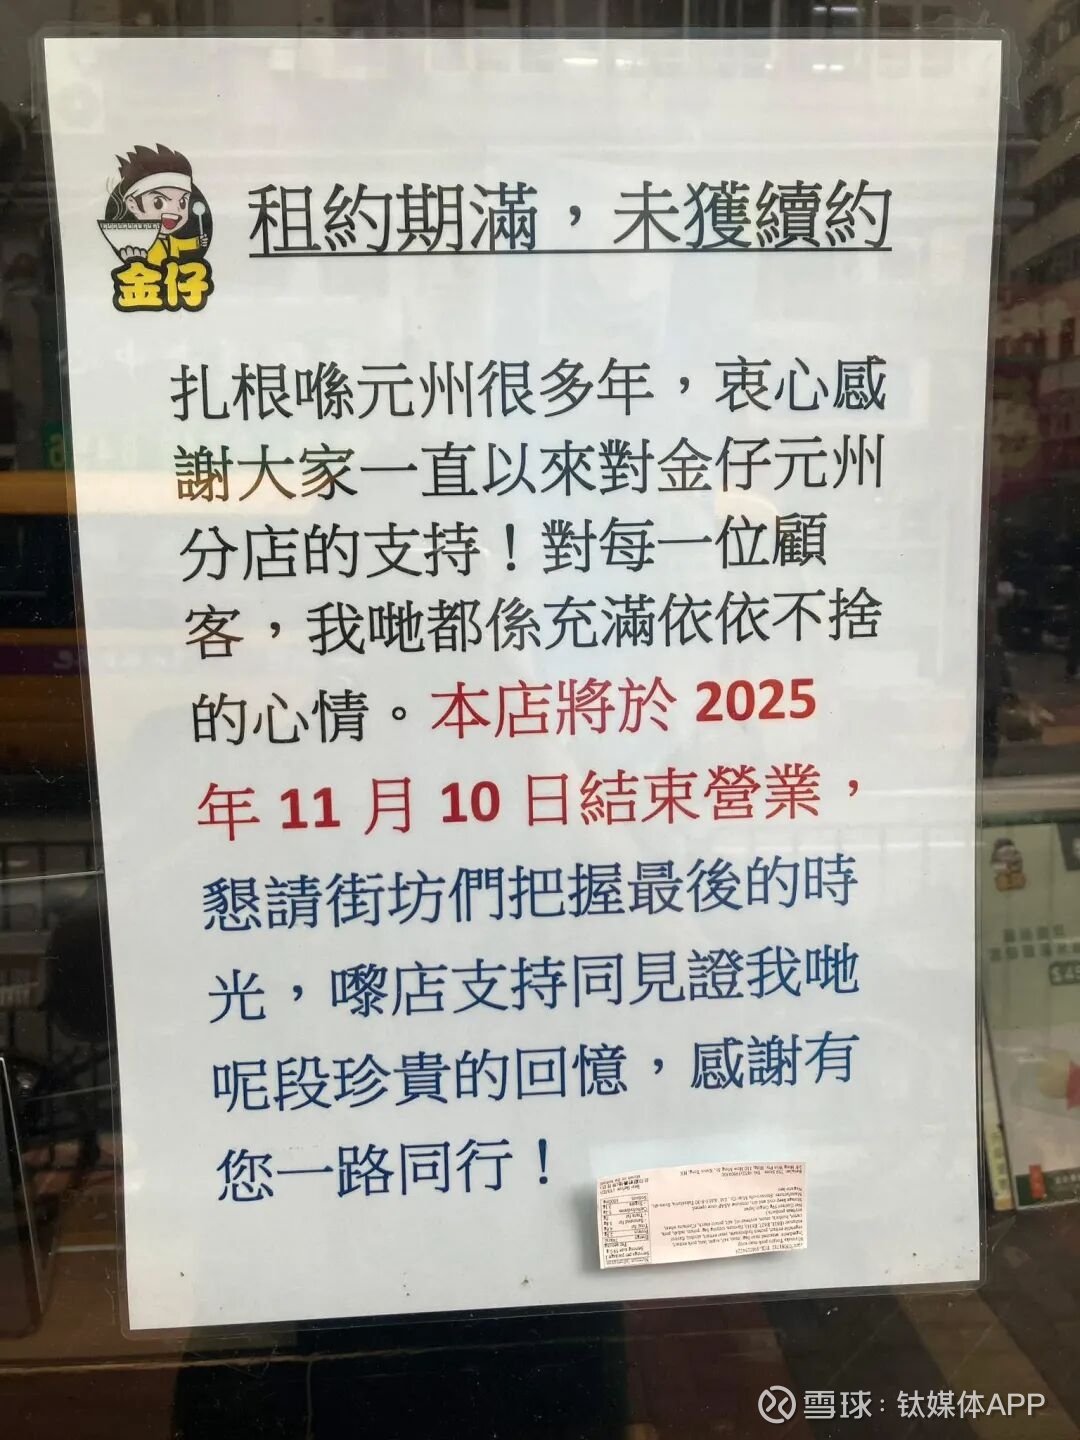 租約期滿，未獲續約
金仔
扎根喺元州很多年，衷心感
謝大家一直以來對金仔元州
分店的支持！對每一位顧
客，我哋都係充滿依依不捨
的心情。本店將於 2025
年 11 月 10 日結束營業，
懇請街坊們把握最後的時
光，嚟店支持同見證我哋
呢段珍貴的回憶，感謝有
您一路同行！
雪球：钛媒体APP